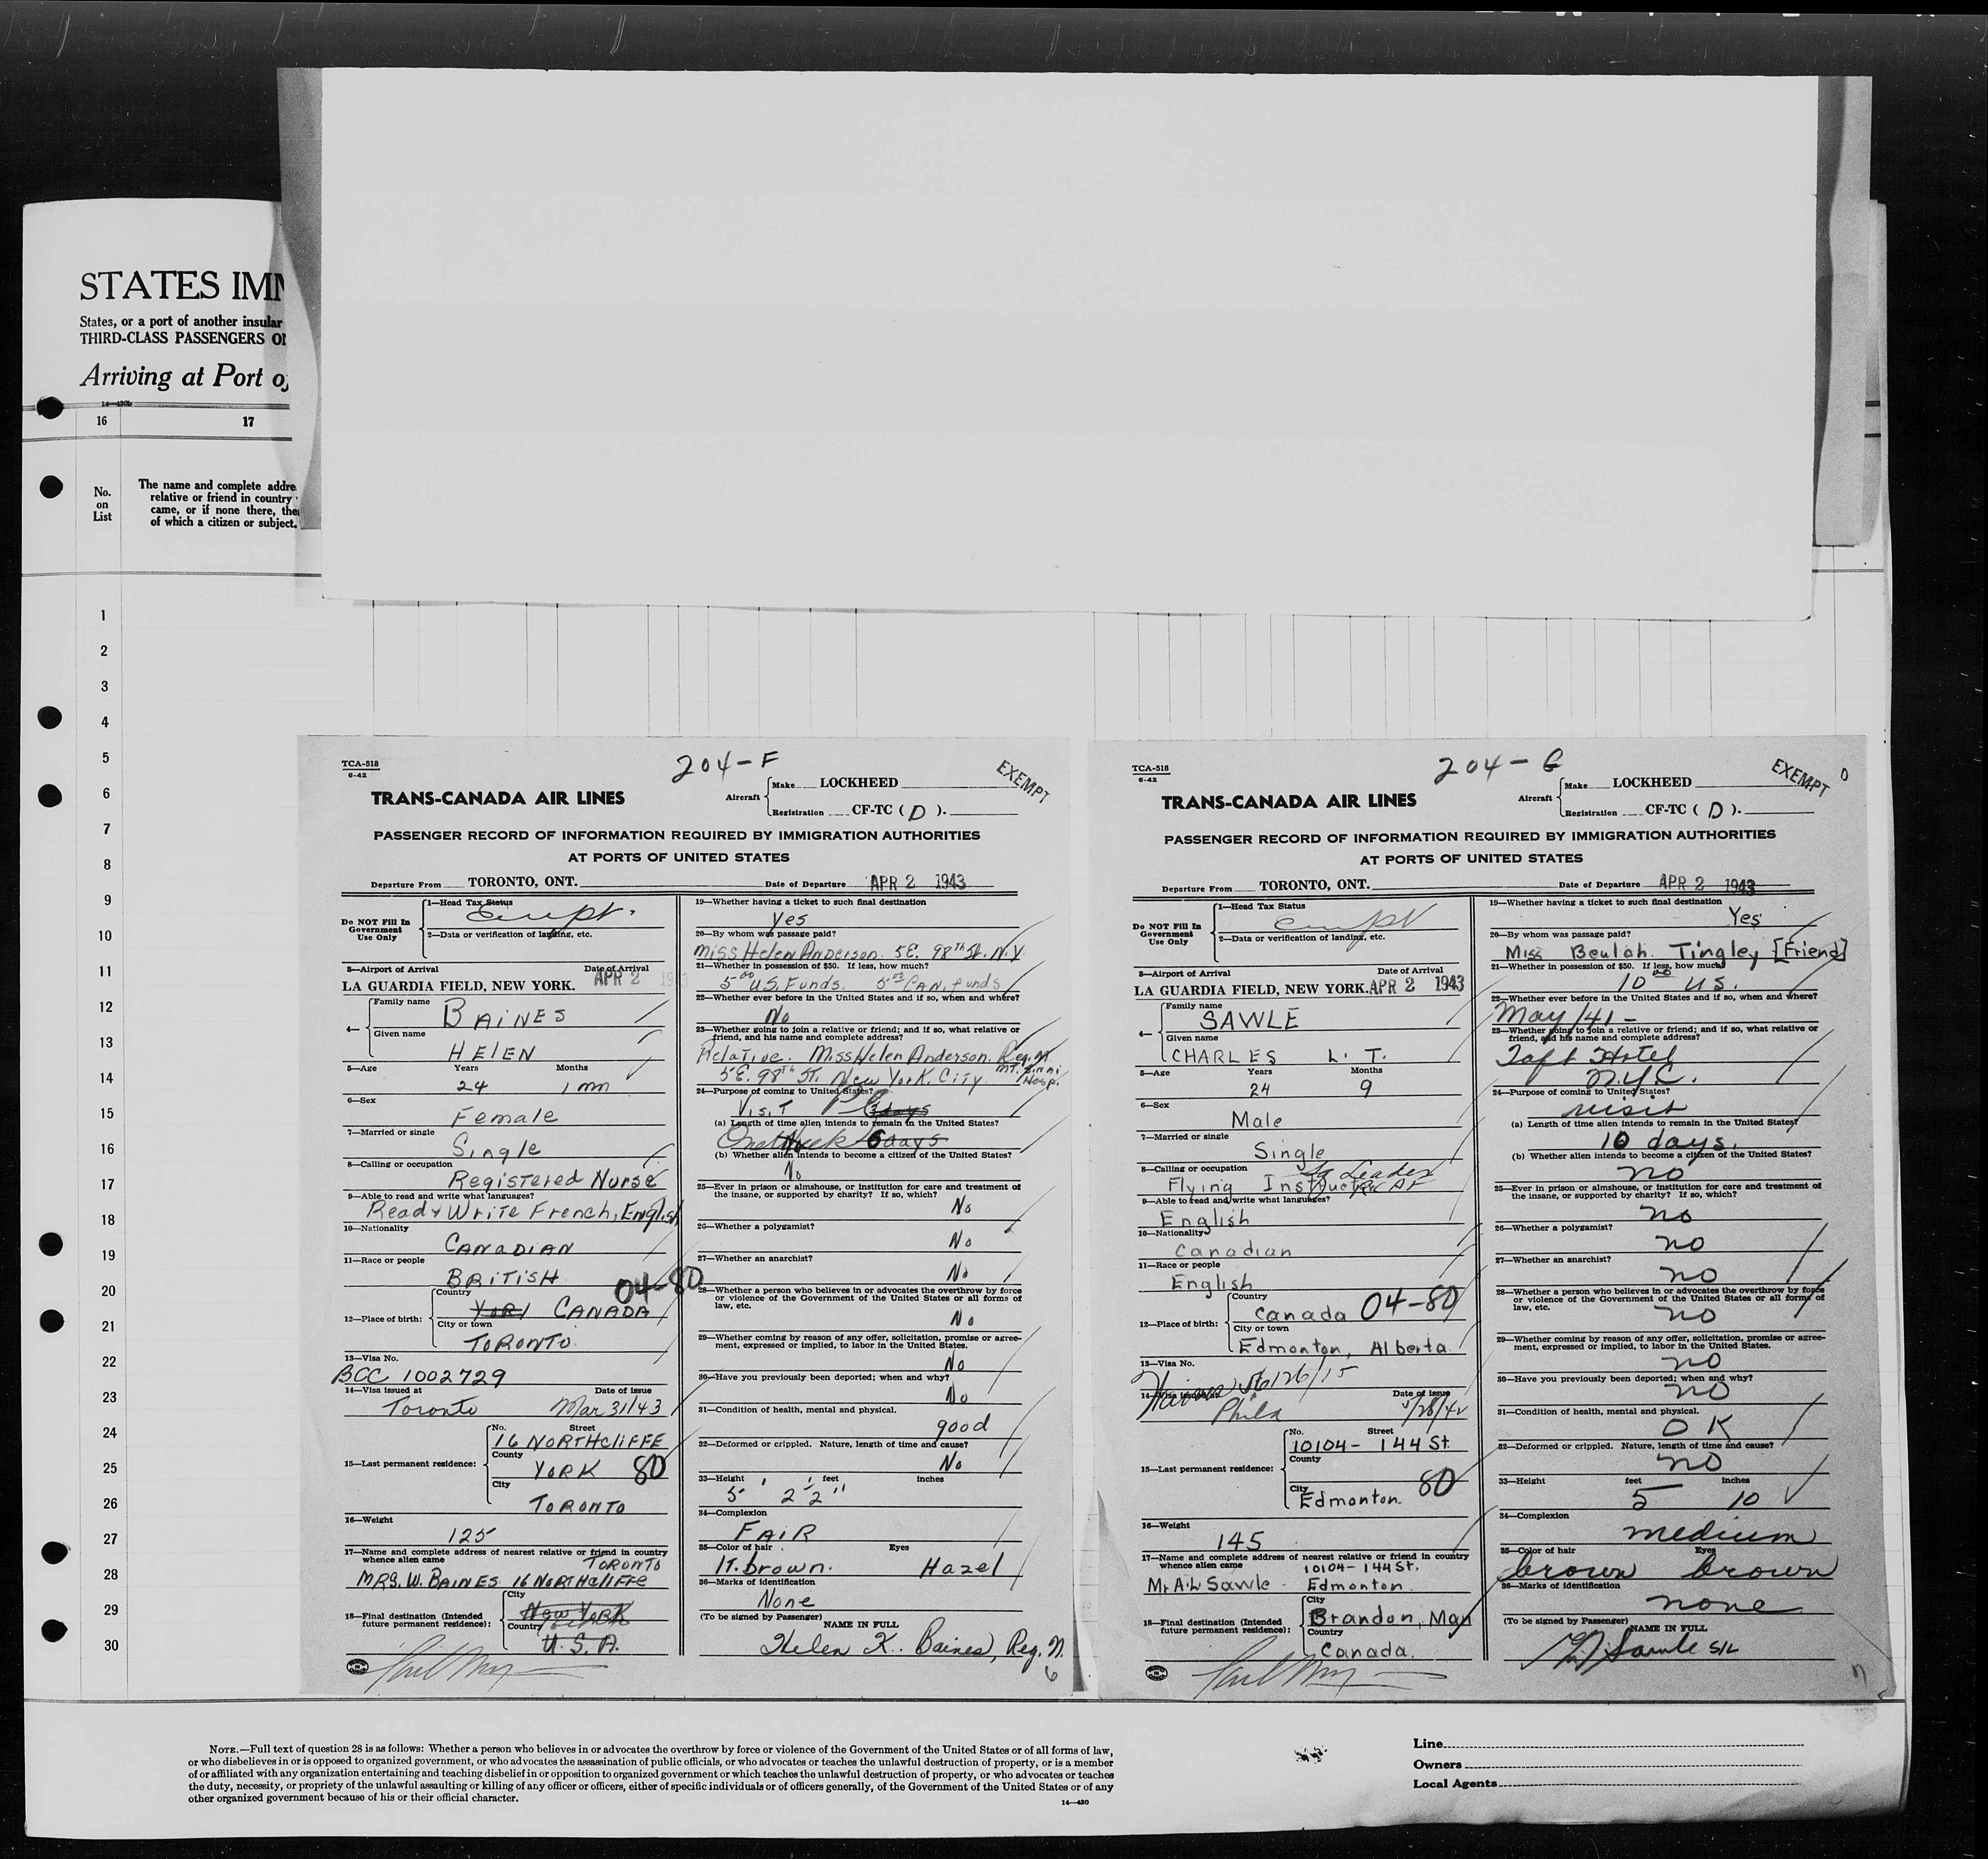 STATES IMM
States, or a port of another insular
THIRD-CLASS PASSENGERS ON
Arriving at Port of
14-430b
16 17
No. on List
The name and complete addre
relative or friend in country
came, or if none there, the
of which a citizen or subject.
1
2
3
4
5
6
7
8
9
10
11
12
13
14
15
16
17
18
19
20
21
22
23
24
25
26
27
28
29
30
204-F
TCA-518
6-42
EXEMPT
TRANS-CANADA AIR LINES
Aircraft
Make LOCKHEED
Registration CF-TC ( D ).
PASSENGER RECORD OF INFORMATION REQUIRED BY IMMIGRATION AUTHORITIES
AT PORTS OF UNITED STATES
Departure From TORONTO, ONT. Date of Departure APR 2 1943
Do NOT Fill In
Government
Use Only
1—Head Tax Status
2—Data or verification of landing, etc.
3—Airport of Arrival Date of Arrival
LA GUARDIA FIELD, NEW YORK. APR 2 1943
4— Family name
BAINES
Given name
HELEN
5—Age Years Months
24 1 mn
6—Sex
Female
7—Married or single
Single
8—Calling or occupation
Registered Nurse
9—Able to read and write what languages?
Read & Write French, English
10—Nationality
CANADIAN
11—Race or people
BRITISH
04-80
12—Place of birth:
Country
CANADA
City or town
TORONTO.
13—Visa No.
BCC 1002729
14—Visa issued at Date of issue
Toronto Mar 31/43
15—Last permanent residence:
No. Street
16 NORTHCLIFFE
County
YORK 80
City
TORONTO
16—Weight
125
17—Name and complete address of nearest relative or friend in country
whence alien came
TORONTO
MRS. W. BAINES 16 NORTHCLIFFE
18—Final destination (Intended
future permanent residence):
City
New York
Country
U.S.A.
19—Whether having a ticket to such final destination
Yes
20—By whom was passage paid?
Miss Helen Anderson. 5E. 98th St. N.Y.
21—Whether in possession of $50. If less, how much?
5.00 U.S. Funds. 5.00 CAN. funds
22—Whether ever before in the United States and if so, when and where?
No
23—Whether going to join a relative or friend; and if so, what relative or
friend, and his name and complete address?
Relative. Miss Helen Anderson. Reg. N.
5E. 98th St. New York. City. MT. Sinai Hosp.
24—Purpose of coming to United States?
Visit 3 days
(a) Length of time alien intends to remain in the United States?
One Week 6 days
(b) Whether alien intends to become a citizen of the United States?
No
25—Ever in prison or almshouse, or institution for care and treatment of
the insane, or supported by charity? If so, which?
No
26—Whether a polygamist?
No
27—Whether an anarchist?
No
28—Whether a person who believes in or advocates the overthrow by force
or violence of the Government of the United States or all forms of
law, etc.
No
29—Whether coming by reason of any offer, solicitation, promise or agree-
ment, expressed or implied, to labor in the United States.
No
30—Have you previously been deported; when and why?
No
31—Condition of health, mental and physical.
good
32—Deformed or crippled. Nature, length of time and cause?
No
33—Height feet inches
5' 2 1/2"
34—Complexion
FAIR
35—Color of hair Eyes
lt. brown. Hazel
36—Marks of identification
None
(To be signed by Passenger) NAME IN FULL
Helen K. Baines, Reg. N.
6
204-G
TCA-518
6-42
EXEMPT
TRANS-CANADA AIR LINES
Aircraft
Make LOCKHEED
Registration CF-TC ( D ).
PASSENGER RECORD OF INFORMATION REQUIRED BY IMMIGRATION AUTHORITIES
AT PORTS OF UNITED STATES
Departure From TORONTO, ONT. Date of Departure APR 2 1943
Do NOT Fill In
Government
Use Only
1—Head Tax Status
2—Data or verification of landing, etc.
3—Airport of Arrival Date of Arrival
LA GUARDIA FIELD, NEW YORK. APR 2 1943
4— Family name
SAWLE
Given name
CHARLES L. T.
5—Age Years Months
24 9
6—Sex
Male
7—Married or single
Single
8—Calling or occupation
Sq Leader
Flying Instructor RCAF
9—Able to read and write what languages?
English
10—Nationality
Canadian
11—Race or people
English
12—Place of birth:
Country
Canada 04-80
City or town
Edmonton, Alberta.
13—Visa No.
14—Visa issued at Date of issue
Phila 5/28/42
15—Last permanent residence:
No. Street
10104 - 144 St.
County
80
City
Edmonton.
16—Weight
145
17—Name and complete address of nearest relative or friend in country
whence alien came
10104 - 144 St.
Mr A.L Sawle Edmonton.
18—Final destination (Intended
future permanent residence):
City
Brandon, Man
Country
Canada.
19—Whether having a ticket to such final destination
Yes
20—By whom was passage paid?
Miss Beulah Tingley [Friend]
21—Whether in possession of $50. If less, how much?
10.00 U.S.
22—Whether ever before in the United States and if so, when and where?
May /41 -
23—Whether going to join a relative or friend; and if so, what relative or
friend, and his name and complete address?
Taft Hotel
N.Y.C.
24—Purpose of coming to United States?
visit
(a) Length of time alien intends to remain in the United States?
10 days.
(b) Whether alien intends to become a citizen of the United States?
no
25—Ever in prison or almshouse, or institution for care and treatment of
the insane, or supported by charity? If so, which?
no
26—Whether a polygamist?
no
27—Whether an anarchist?
no
28—Whether a person who believes in or advocates the overthrow by force
or violence of the Government of the United States or all forms of
law, etc.
no
29—Whether coming by reason of any offer, solicitation, promise or agree-
ment, expressed or implied, to labor in the United States.
no
30—Have you previously been deported; when and why?
no
31—Condition of health, mental and physical.
OK
32—Deformed or crippled. Nature, length of time and cause?
no
33—Height feet inches
5 10
34—Complexion
medium
35—Color of hair Eyes
brown brown
36—Marks of identification
none
(To be signed by Passenger) NAME IN FULL
Sawle S/L
7
NOTE.—Full text of question 28 is as follows: Whether a person who believes in or advocates the overthrow by force or violence of the Government of the United States or of all forms of law,
or who disbelieves in or is opposed to organized government, or who advocates the assassination of public officials, or who advocates or teaches the unlawful destruction of property, or is a member
of or affiliated with any organization entertaining and teaching disbelief in or opposition to organized government or which teaches the unlawful destruction of property, or who advocates or teaches
the duty, necessity, or propriety of the unlawful assaulting or killing of any officer or officers, either of specific individuals or of officers generally, of the Government of the United States or of any
other organized government because of his or their official character.
14—430
Line
Owners
Local Agents